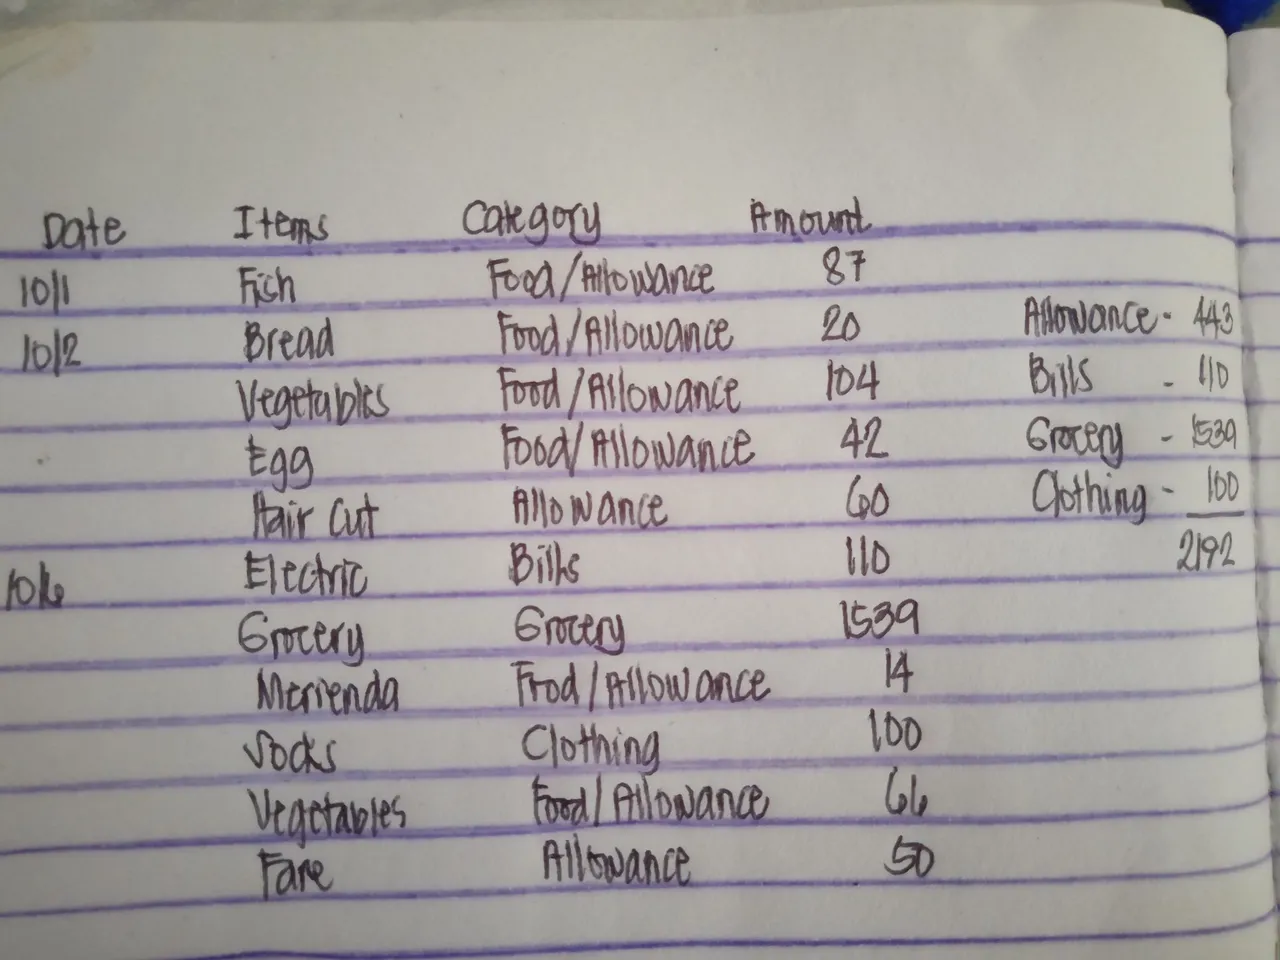 Date Items Category Amount
10/1 Fish Food/Allowance 87
10/2 Bread Food/Allowance 20
Vegetables Food/Allowance 104
Egg Food/Allowance 42
Hair Cut Allowance 60
10/6 Electric Bills 110
Grocery Grocery 1539
Merienda Food/Allowance 14
Socks Clothing 100
Vegetables Food/Allowance 66
Fare Allowance 50
Allowance - 443
Bills - 110
Grocery - 1539
Clothing - 100
2192